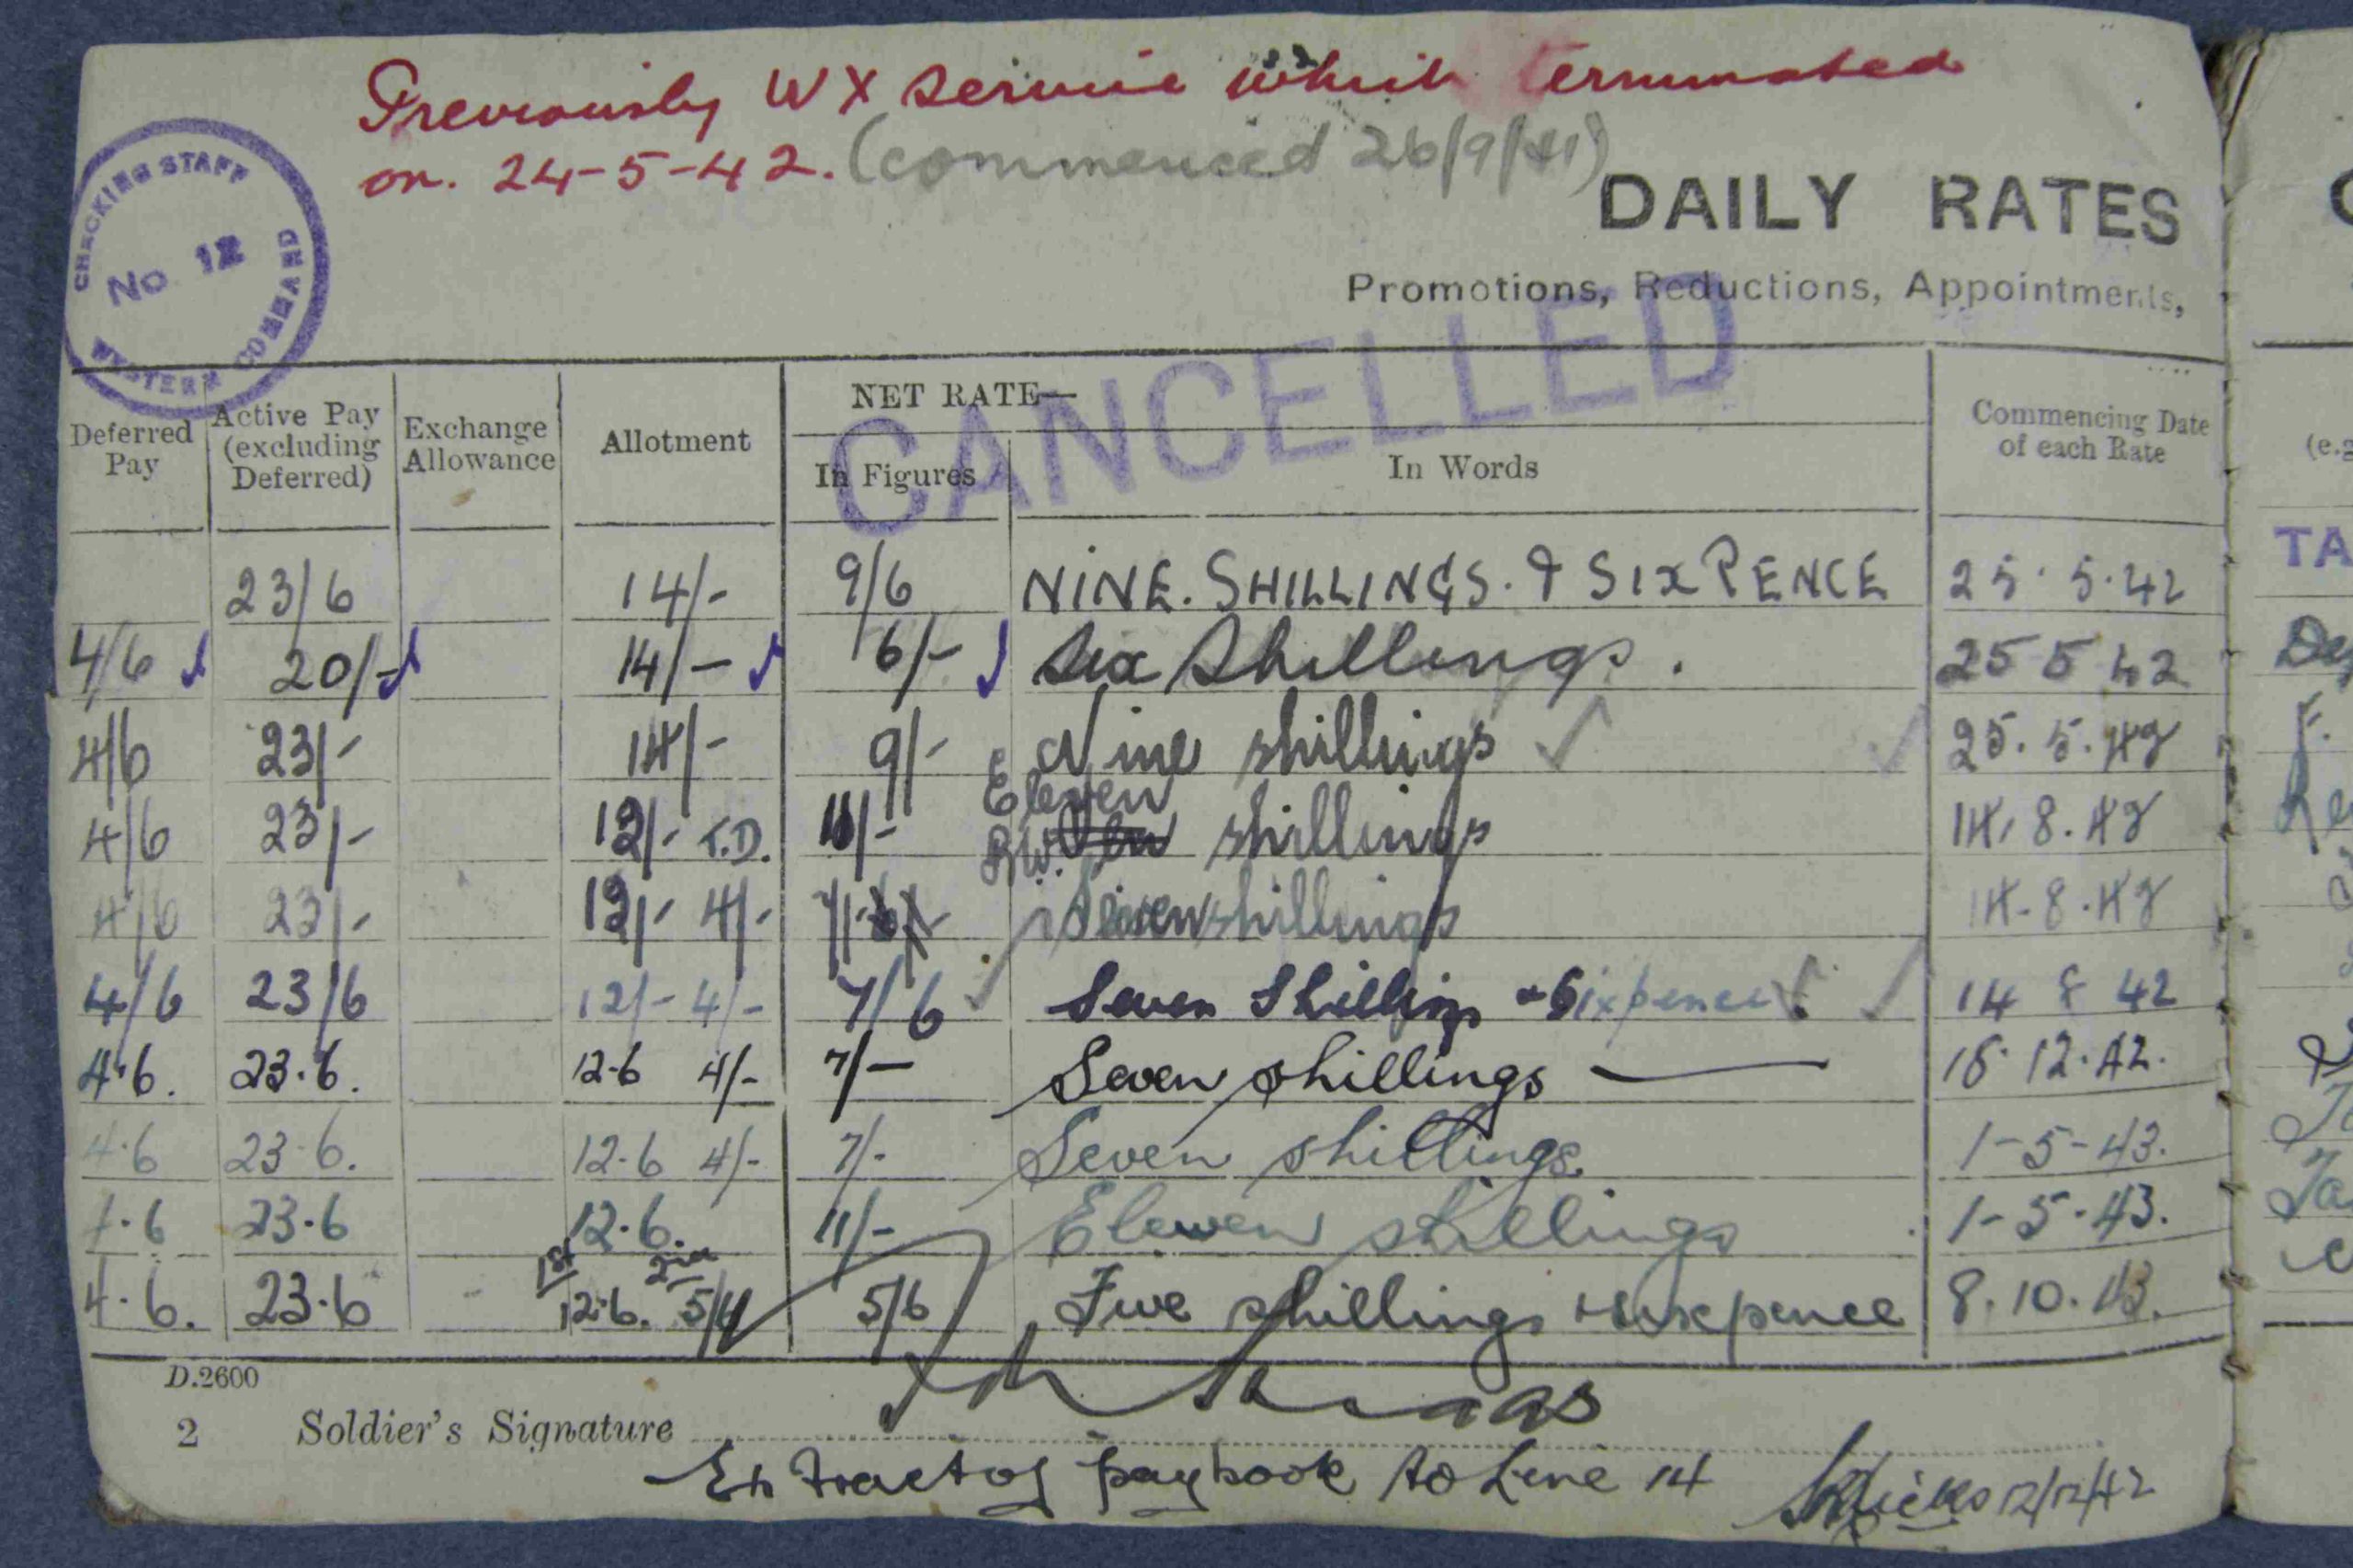 Previously WX service which terminated
on. 24-5-42. (commenced 26/9/41)
CHECKING STAFF
No 12
WESTERN COMMAND
DAILY RATES
Promotions, Reductions, Appointments,
CANCELLED
NET RATE—
Deferred Pay Active Pay (excluding Deferred) Exchange Allowance Allotment In Figures In Words Commencing Date of each Rate
(e.g
23/6 14/- 9/6 NINE. SHILLINGS. & SIXPENCE 25.5.42
TA
4/6 20/- 14/- 6/- Six Shillings. 25 5 42
4/6 23/- 14/- 9/- Nine shillings 25.5.42
Eleven
4/6 23/- 12/- T.D. 11/- shillings 14.8.42
4/6 23/- 12/- 4/- 7/- Seven shillings 14-8.42
4/6 23/6 12/- 4/- 7/6 Seven Shillings & Sixpence 14 8 42
4.6. 23.6. 12.6 4/- 7/- Seven shillings — 16.12.42.
4.6 23.6. 12.6 4/- 7/- Seven shillings. 1-5-43.
4.6 23.6 12.6. 11/- Eleven shillings 1-5-43.
1st 2nd
4.6. 23.6 12.6. 5/6 Five shillings & sixpence 8.10.43.
D.2600
2 Soldier's Signature
Extract of paybook to Line 14 12/12/42